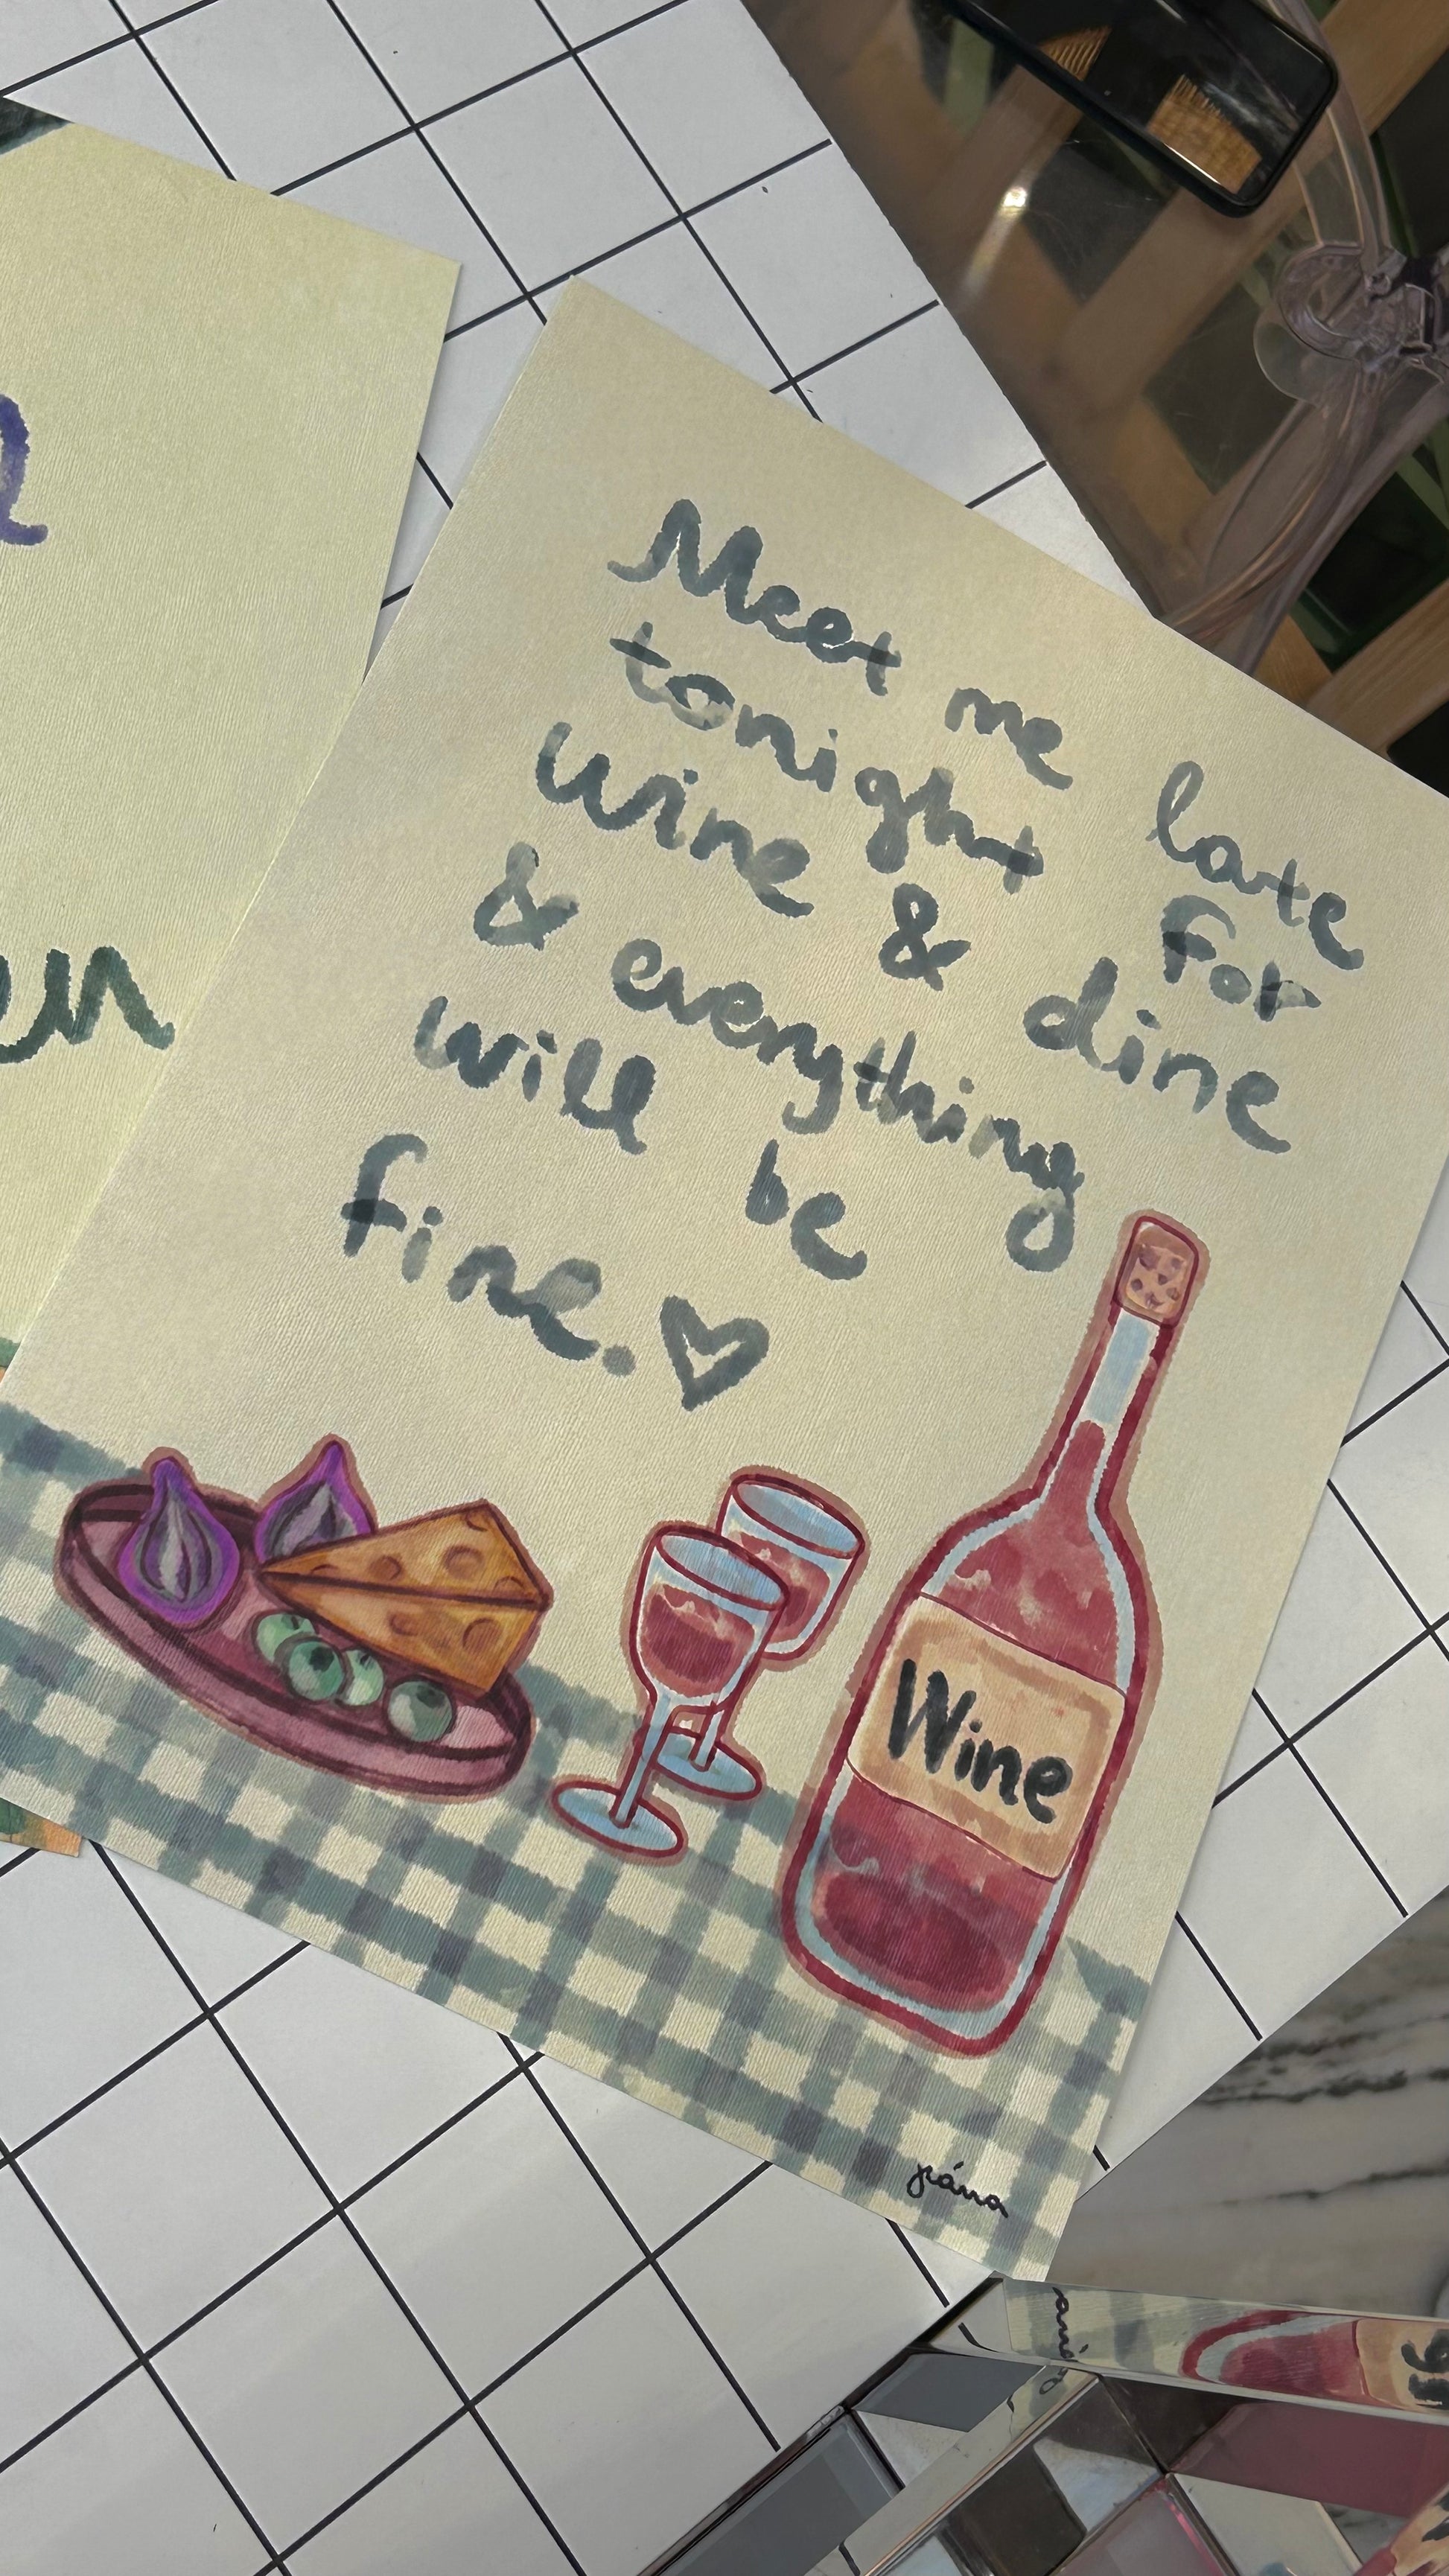 Meet me late
tonight For
wine & dine
& everything
will be
fine.
Wine